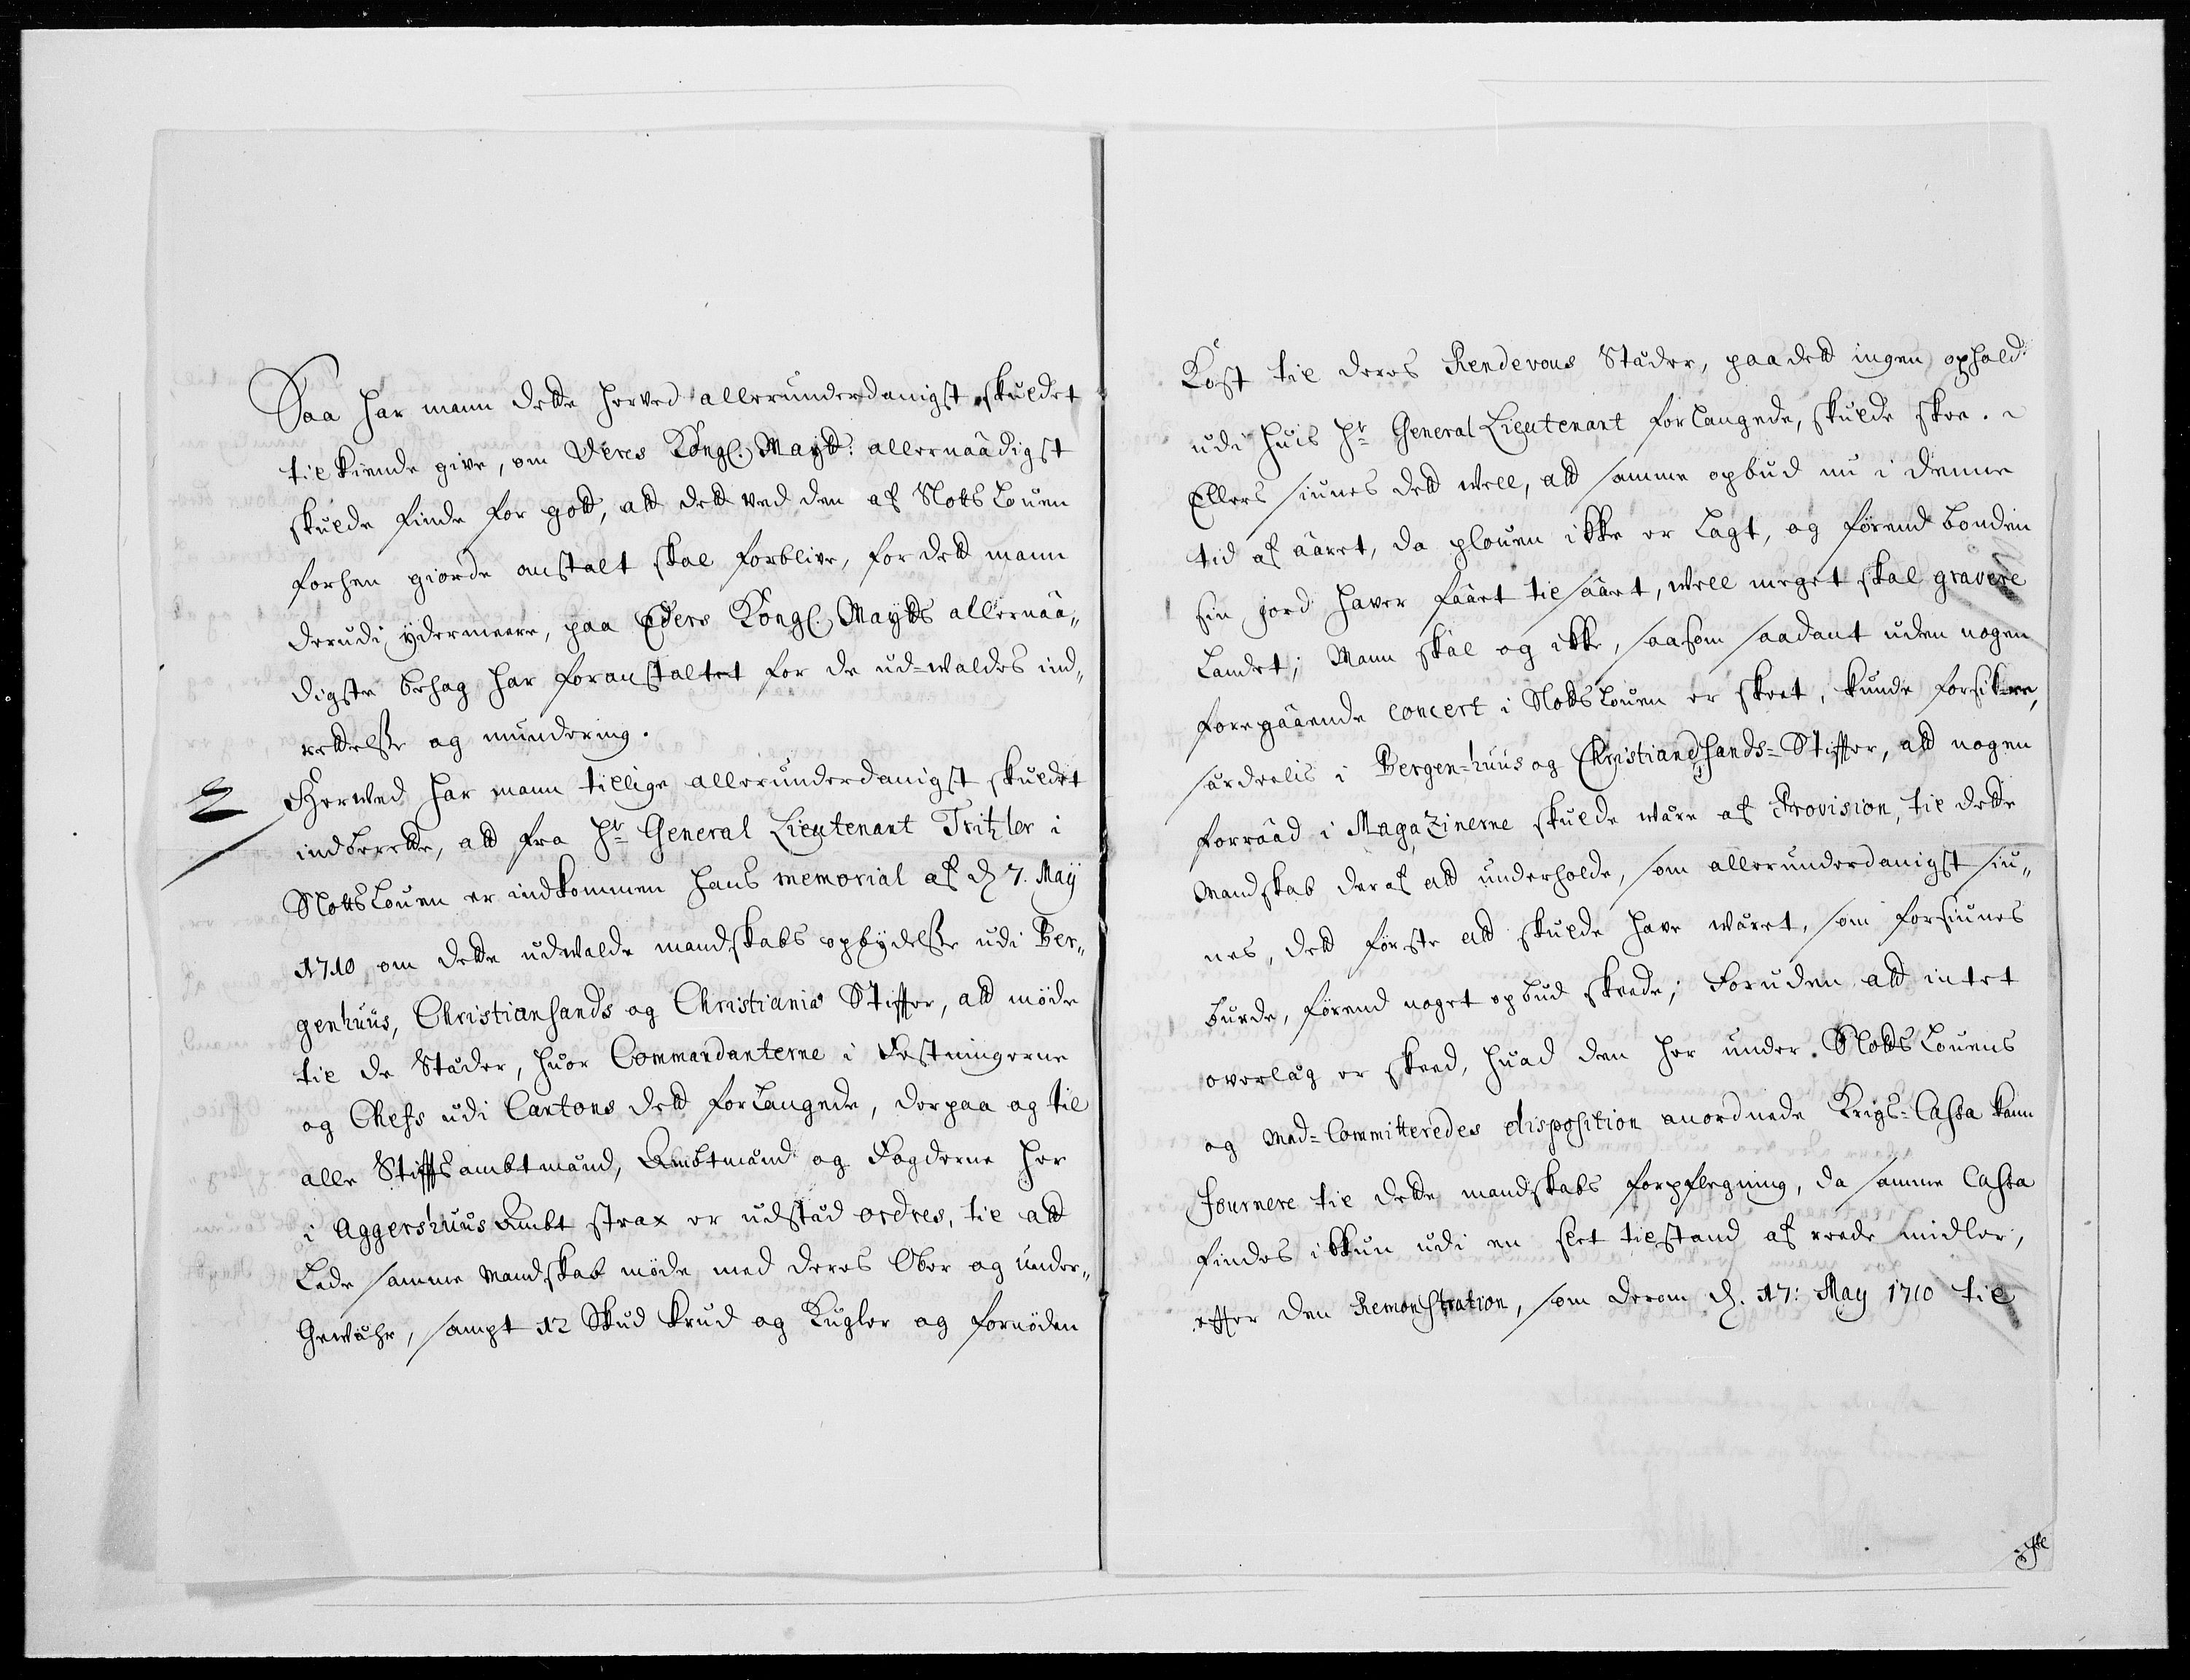 Saa har mann dette herved allerunderdanigst skuldet
til kiende give, om Deres Kongl. Maytt: allernaadigst
skulde finde for gott, att dett ved den af Slotts Louen
forhen giorde anstalt skal forblive, for dett mann
derudi ydermeere, paa Eders Kongl. Maytts allernaa„
digste behag har foranstaltet for de ud-waldes ind„
rettelsse og mundering.
2 Herved har mann tillige allerunderdanigst skuldet
indberette, att fra Hr General Lieutenant Tritzler i
Slotts Louen er indkommen hans memorial af d. 7. May
1710 om dette udwalde mandskabs opbydelsse udi Ber„
genhuus, Christiansands og Christianiæ Stiffter, att møde
til de Stæder, huor Commandanterne i Festningerne
og Chefs udi Cantons dett forlangede, derpaa og til
alle Stifftsambtmænd, Ambtmænd og Fogderne her
i Aggershuus Ambt strax er udstæd ordres, til att
Lade samme Mandskab møde med deres Ober og under„
Gewæhr, sampt 12 Skud Krud og Kugler og fornøden
Kost til deres Rendevous Stæder, paa dett ingen ophold
udi huis Hr General Lieutenant forlangede, skulde skee.
Ellers siunes dett well, att samme opbud nu i denne
tid af aaret, da plouen ikke er Lagt, og førend bonden
sin jord haver faaet til saaet, well meget skal gravere
Landet; Mann skal og ikke, saasom saadant uden nogen
foregaaende concert i Slotts Louen er skeet, kunde forsikre,
særdeelis i Bergen=huus og Christiandhands=Stiffter, att nogen
forraad i Magazinerne skulde wære af Provision, til dette
Mandskab deraf att underholde, som allerunderdanigst siu„
nes, dett første att skulde have wæret, som forsiunes
burde, førend noget opbud skeede; Foruden att intet
overlæg er skeed, huad den her under Slotts Louens
og Med=Committeredes disposition anordnede Krigs=Cassa kann
fournere til dette mandskabs forpflegning, da samme Cassa
findes ikkun udi en slet tilstand af reede midler,
effter den Remonstration, som derom d. 17: May 1710 til